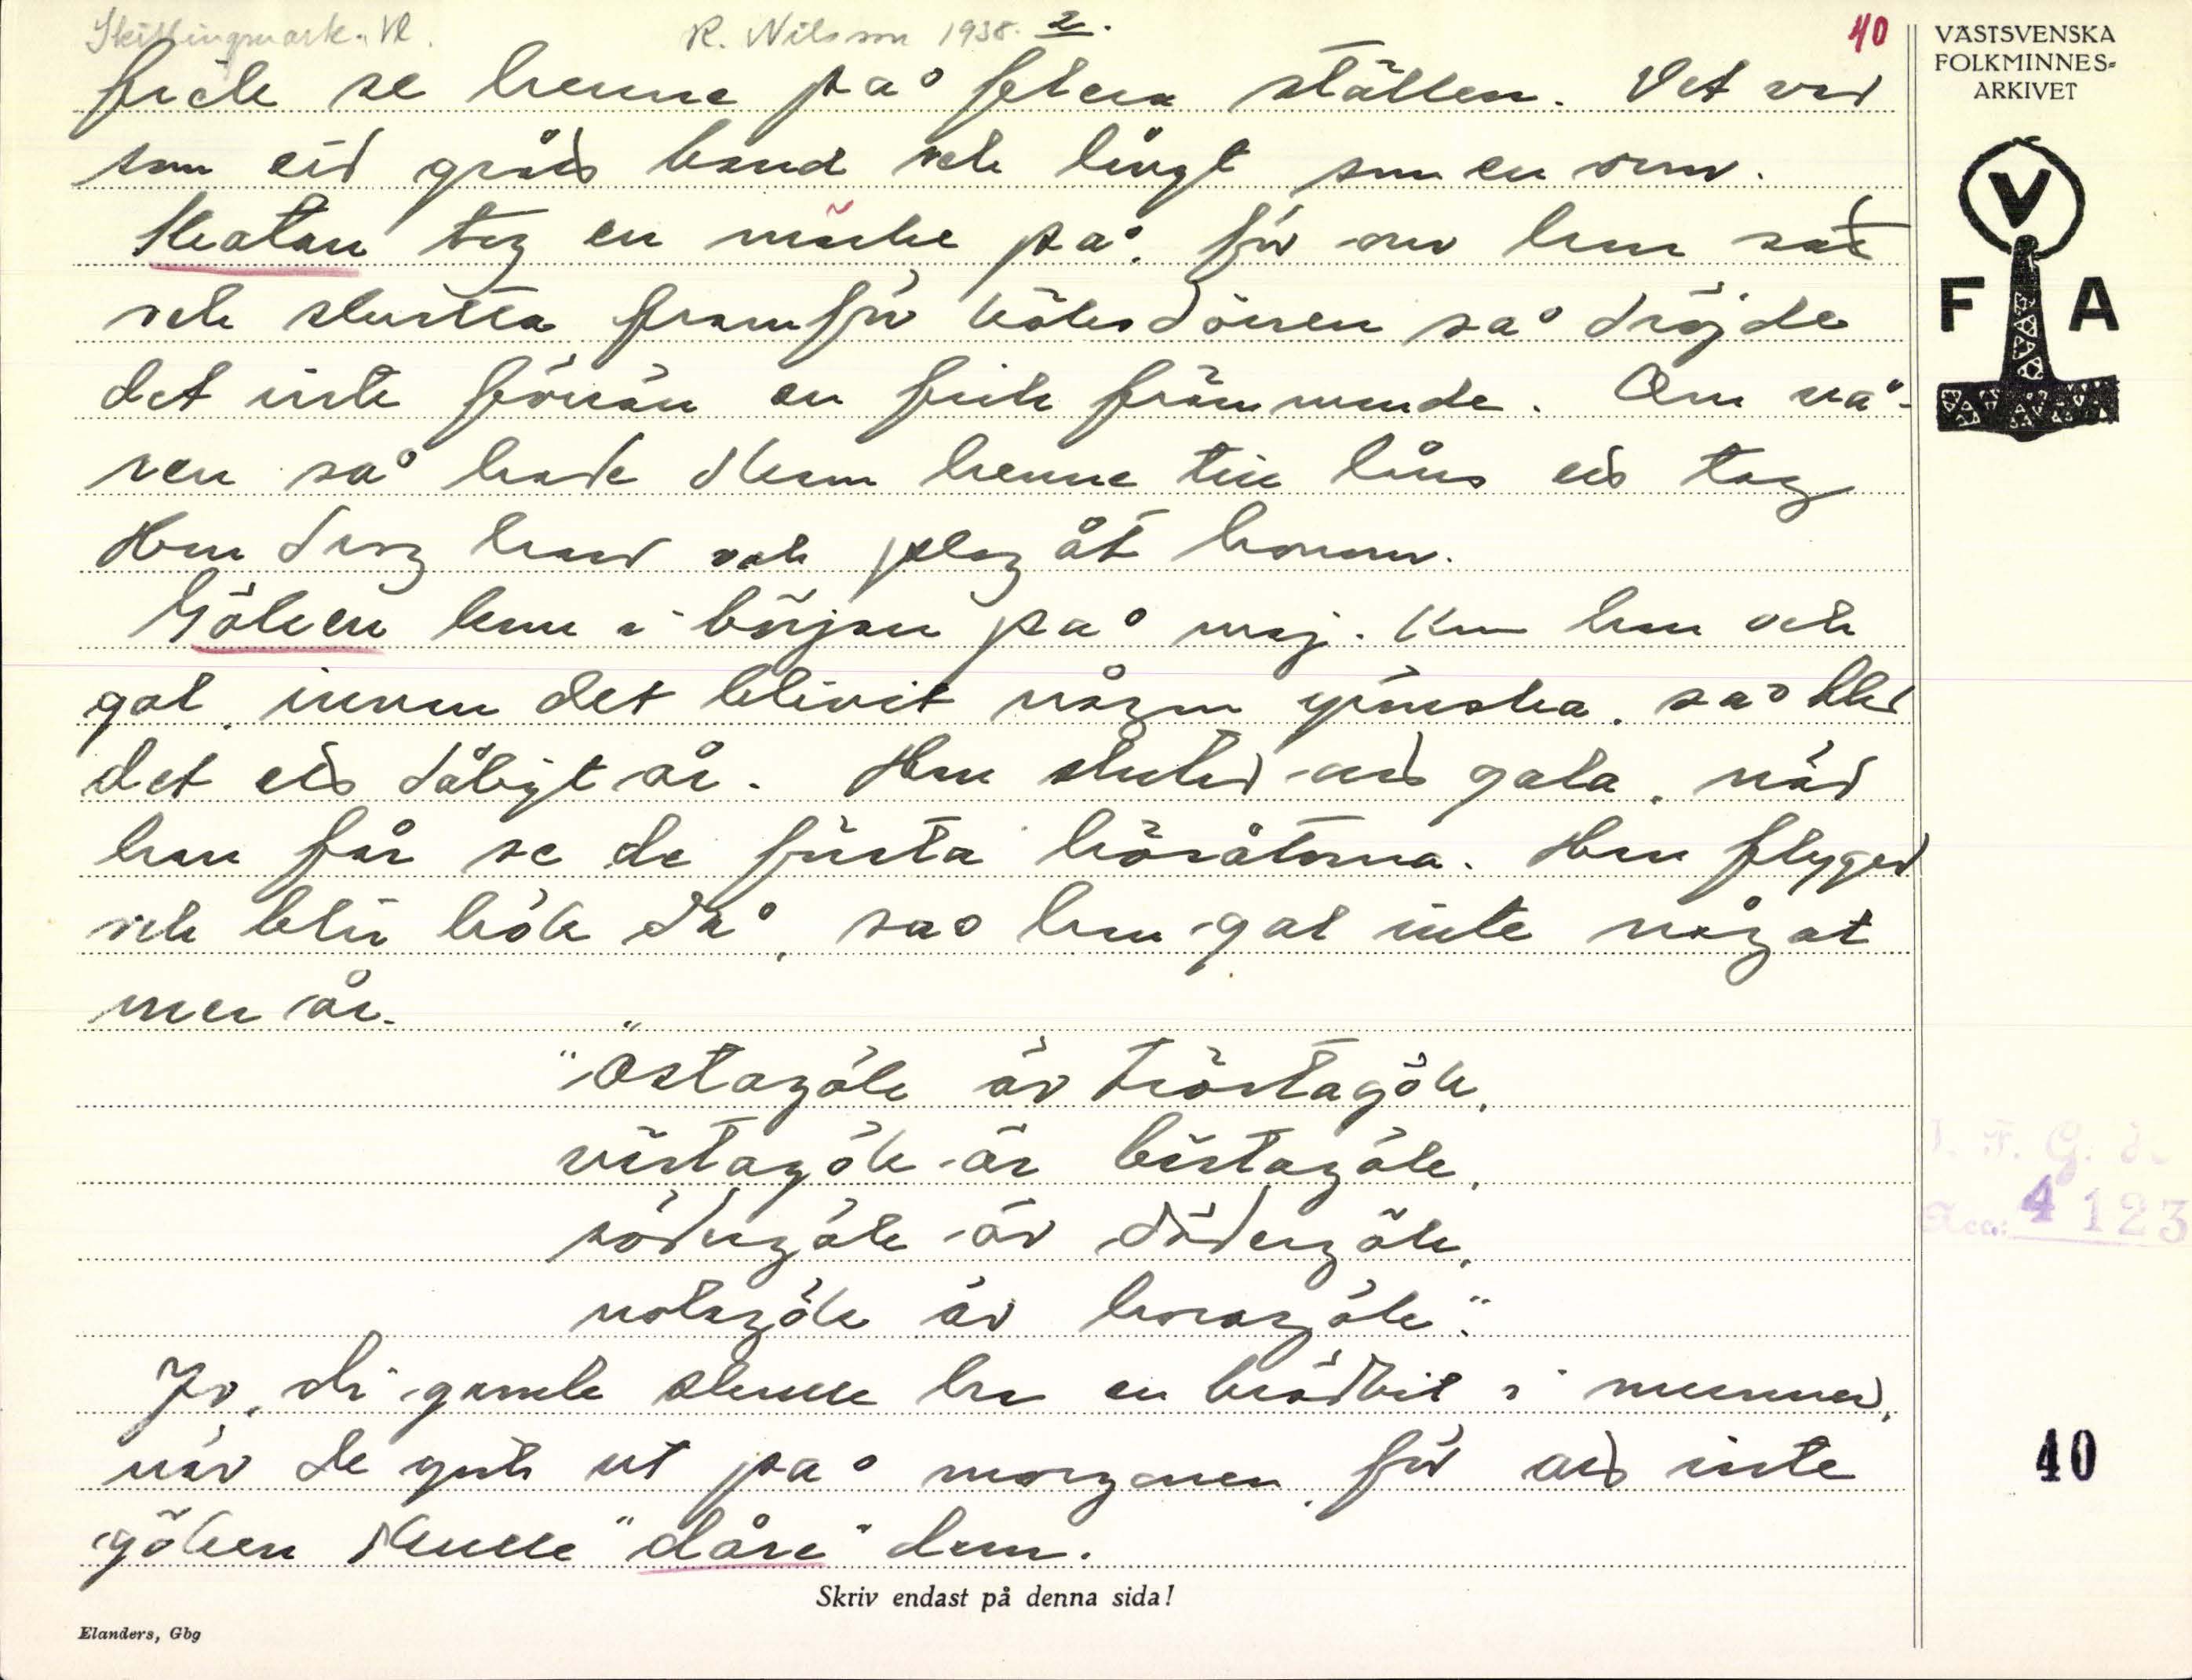 Skillingmark. Vl. R. Nilsson 1938. 2. 40
fick se henne på flera ställen. Det var
som ett grått band och långt som en orm.
Skatan tog en märke på, för om hon satt
och skratta framför köksdörren så dröjde
det inte förrän en fick främmande. Om vå-
ren så hade som henne till låns ett tag
Hon drog harv och plog åt honom.
Göken kom i början på maj. Kom hon och
gol, innan det blivit någon grönska, så blev
det ett dåligt år. Hon slutar att gala, när
hon får se de första hösåtorna. Hon flyger
och blir hök då, så hon gal inte något
mer år.
"Östagök är tröstagök,
västagök är bästagök,
södergök är dödergök,
nolagök är horagök".
Jo, di gamle skulle ha en brödbit i munnen,
när de gick ut på morgonen, för att inte
göken skulle "dåra" dem.
Skriv endast på denna sida!
Elanders, Gbg
VÄSTSVENSKA
FOLKMINNES-
ARKIVET
V
F A
I. F. G. H.
Acc: 4123
40